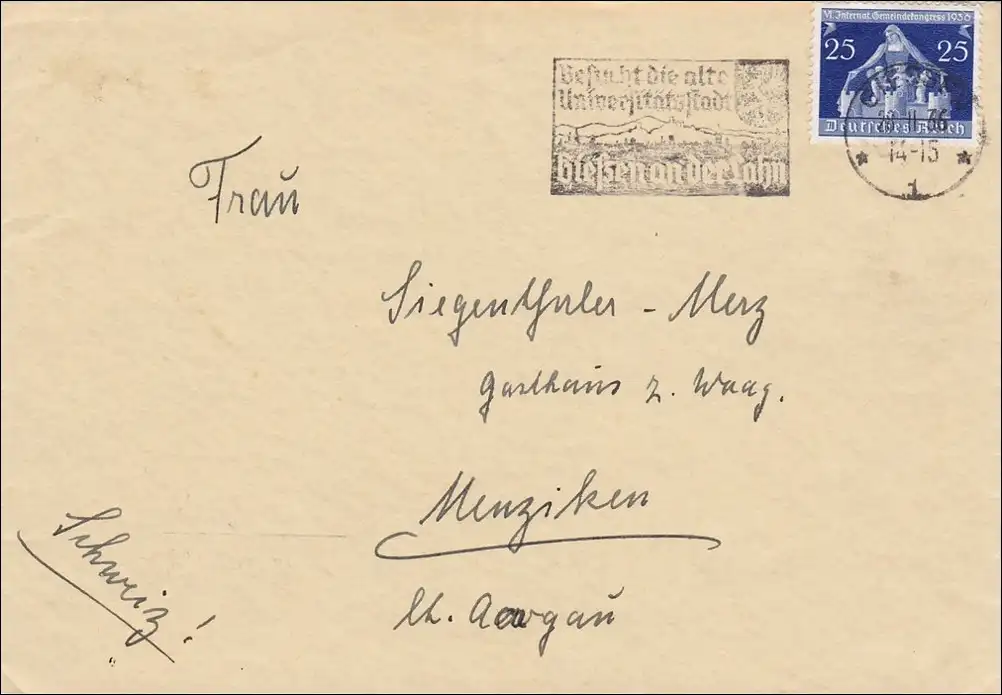 VI. Internat. Gemeindekongress 1936
25 25
Deutsches Reich
Besucht die alte
Universitätsstadt
Gießen an der Lahn
14-15
1
Frau
Siegenthaler - Merz
Gasthaus z. Waag.
Menziken
Kt. Aargau
Schweiz!